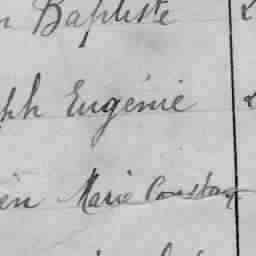 n Baptiste
ph Eugénie
en Marie Constant